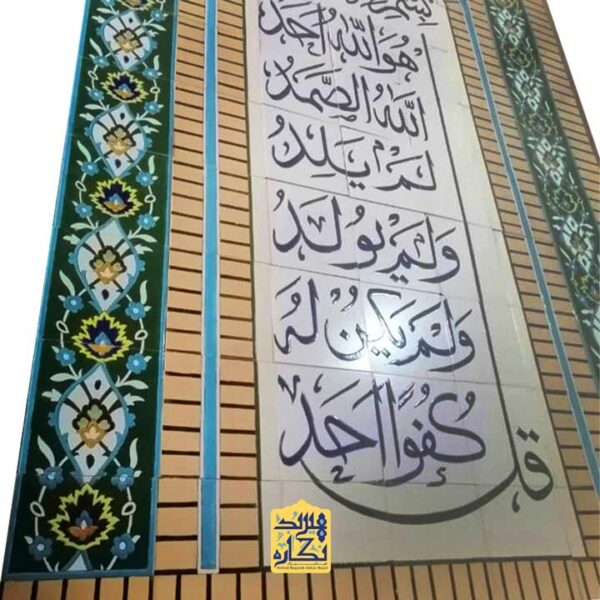 بسم
قل
هو الله احد
الله الصمد
لم یلد
ولم یولد
ولم یکن له
کفوًا احد
مسجد
نگاره